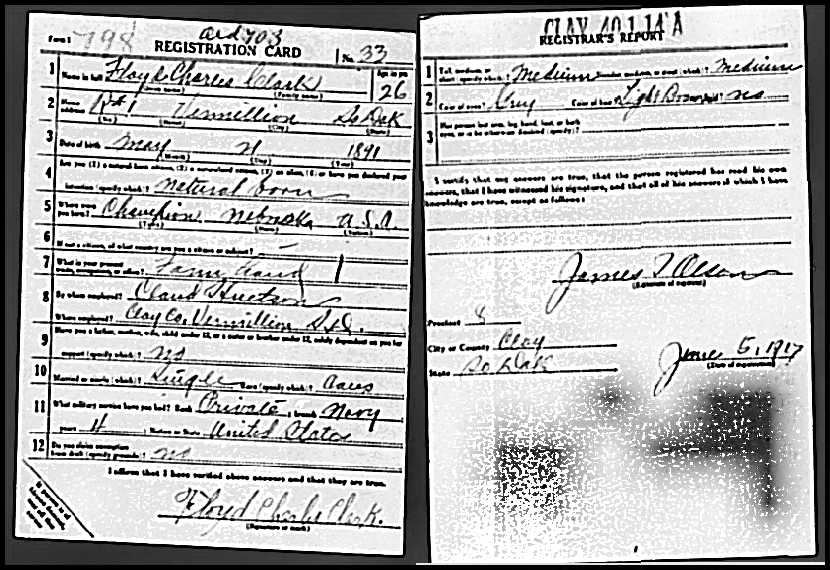 Form 1 798 ard 703
REGISTRATION CARD No. 33
1 Name in full Floyd Charles Clark Age, in yrs 26
(Given name) (Family name)
2 Home address Rt #1 Vermillion So Dak
(No.) (Street) (City) (State)
3 Date of birth May 1891
(Month) (Day) (Year)
4 Are you (1) a natural born citizen, (2) a naturalized citizen, (3) an alien, (4) or have you declared your
intention (specify which)? Natural born
5 Where were you born? Champion Nebraska U.S.A.
(Town) (State) (Nation)
6 If not a citizen, of what country are you a citizen or subject? —
7 What is your present trade, occupation, or office? Farm hand 1
8 By whom employed? Claud Huetson
Where employed? Clay Co. Vermillion S.D.
9 Have you a father, mother, wife, child under 12, or a sister or brother under 12, solely dependent on you for
support (specify which)? no
10 Married or single (which)? Single Race (specify which)? Caus
11 What military service have you had? Rank Private ; branch Navy
years 4 ; Nation or State United States
12 Do you claim exemption from draft (specify grounds)? no
I affirm that I have verified above answers and that they are true.
Floyd Charles Clark.
(Signature or mark)
CLAY 40 1 14 A
REGISTRAR'S REPORT
1 Tall, medium, or short (specify which)? Medium Slender, medium, or stout (which)? Medium
2 Color of eyes? Gray Color of hair? Light Brown Bald? no
3 Has person lost arm, leg, hand, foot, or both
eyes, or is he otherwise disabled (specify)?
I certify that my answers are true, that the person registered has read his own
answers, that I have witnessed his signature, and that all of his answers of which I have
knowledge are true, except as follows:
James T Olson
(Signature of registrar)
Precinct 8
City or County Clay
State So Dak
June 5, 1917
(Date of registration)